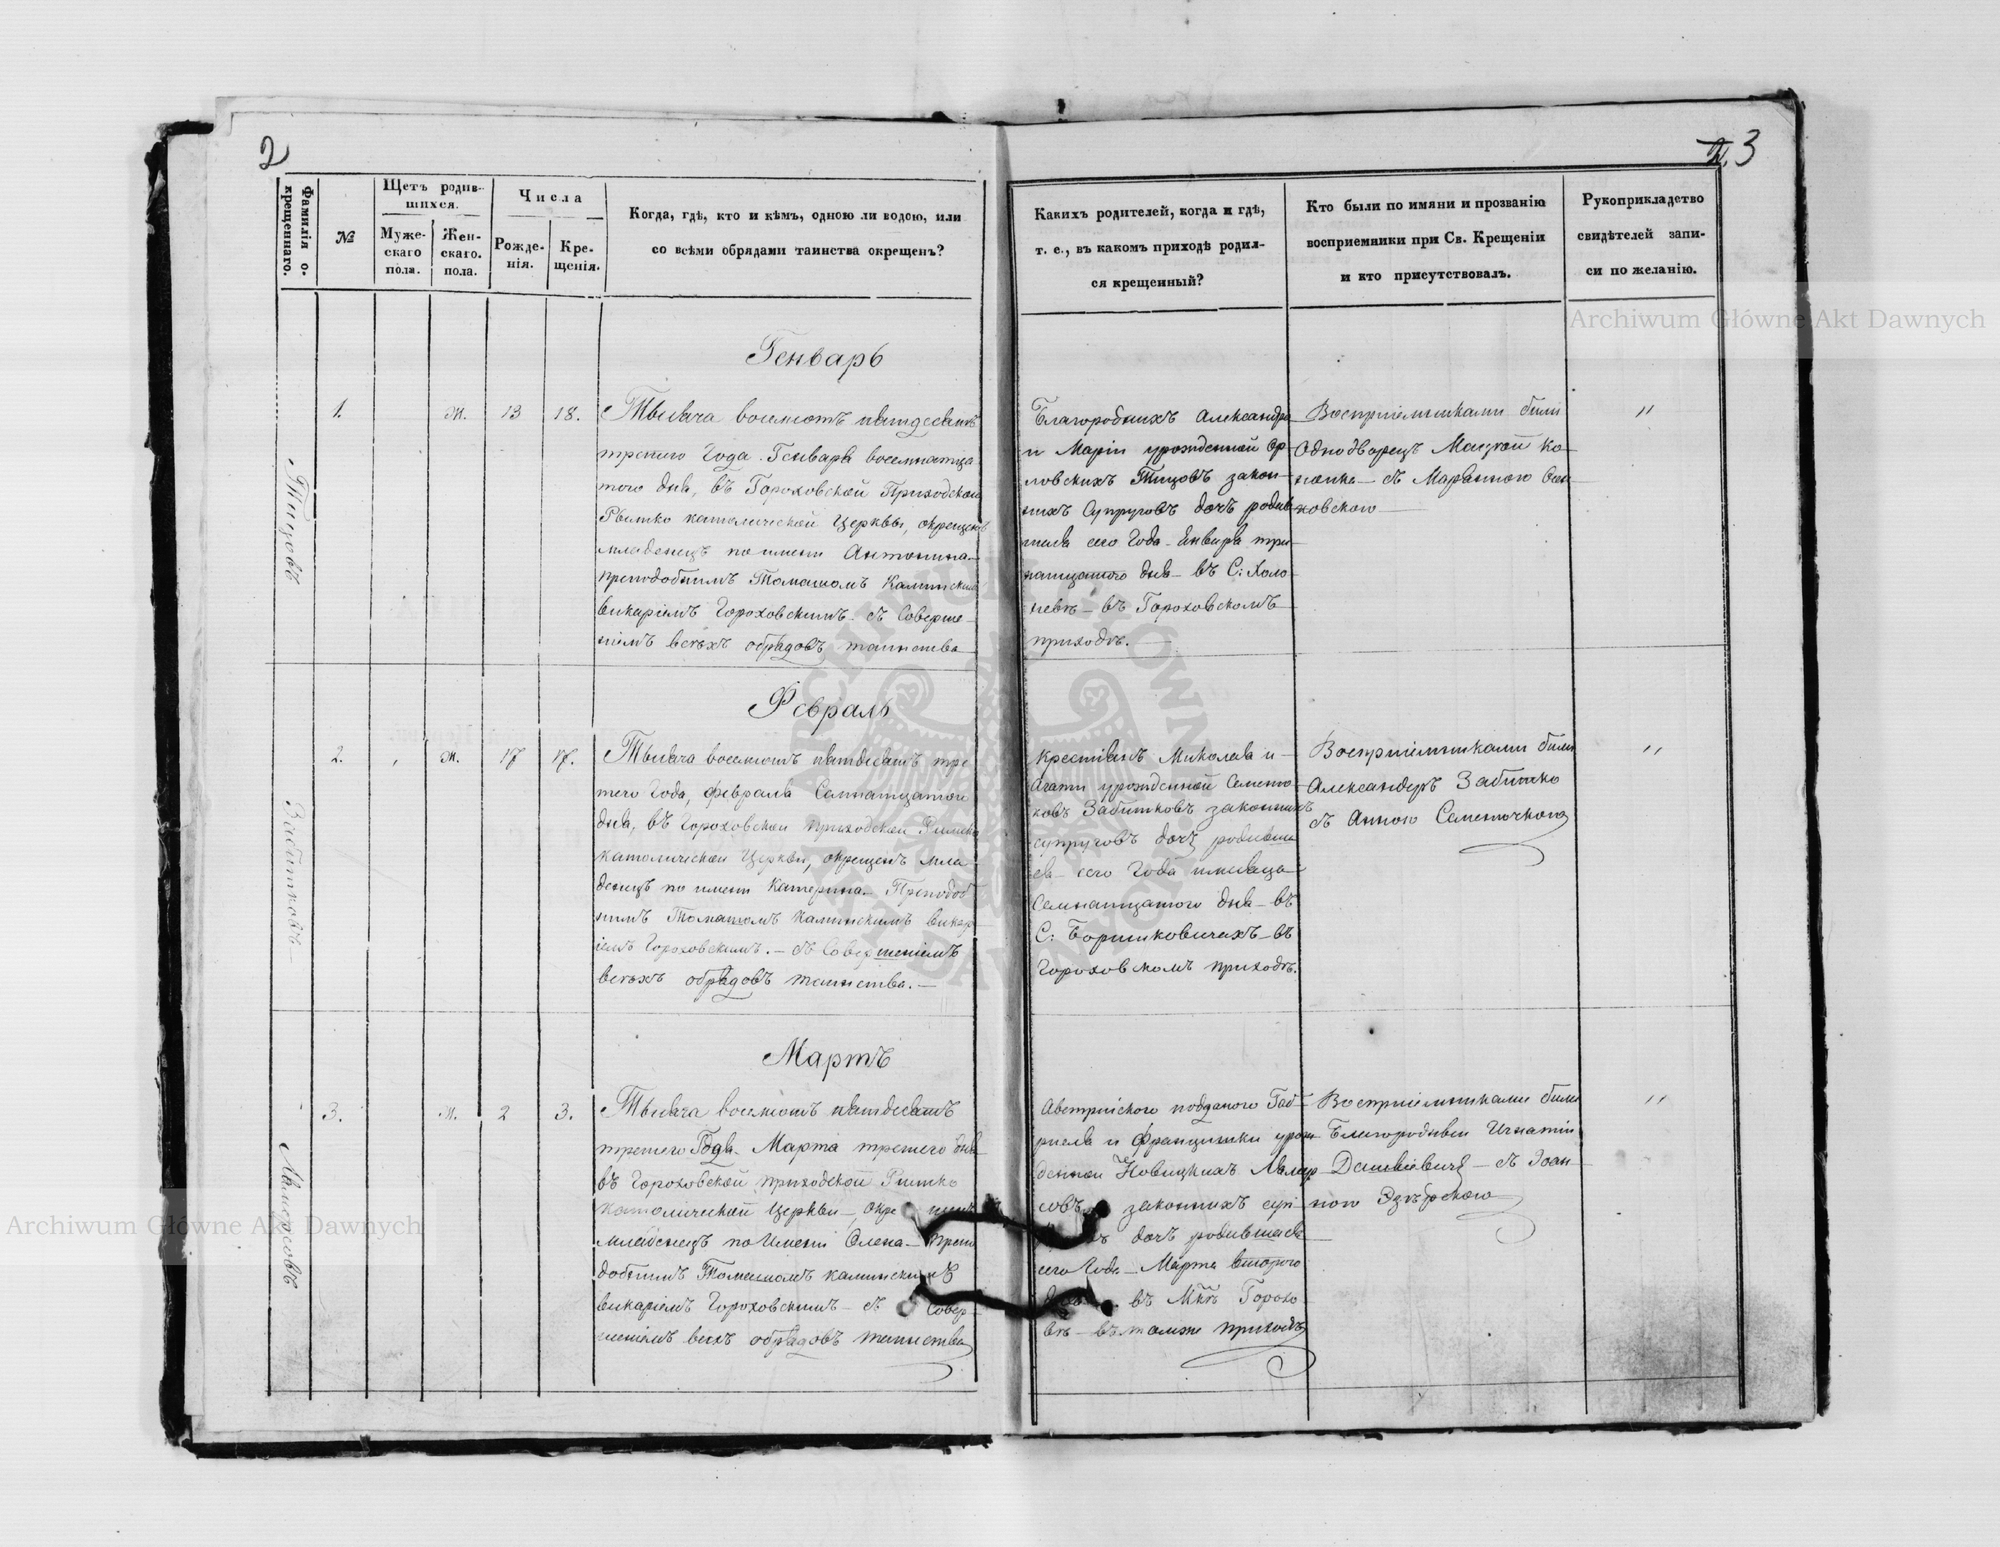 2
Фамилія о-
крещеннаго.
№
Щетъ родив-
шихся.
Муже-
скаго
пола.
Жен-
скаго.
пола.
Числа
Рожде-
нія.
Кре-
щенія.
Когда, гдѣ, кто и кѣмъ, одною ли водою, или
со всѣми обрядами таинства окрещенъ?
Генварь
Тицовъ
1.
ж.
13
18.
Тысяча восемсотъ пятдесятъ
третяго Года Генваря восемнатца
того дня, въ Гороховской Приходской
Римско католической Церкви, окрещенъ
младенецъ по имени Антонина
преподобнымъ Томашомъ Каминским
викаріемъ Гороховскимъ съ Соверше-
ніемъ всехъ обрядовъ таинства
Февраль
Забитковъ
2.
ж.
17
17.
Тысяча восемсотъ пятдесятъ тре
тего Года, февраля Семнатцатого
дня, въ Гороховской приходской Римско
католической Церкви, окрещенъ мла-
денецъ по имени Катерина Преподоб
нымъ Томашомъ Каминскимъ викар
іемъ Гороховскимъ. — съ Совершеніемъ
всехъ обрядовъ таинства. —
Мартъ
3.
ж.
2
3.
Тысяча восемсотъ пятдесятъ
третего Года Марта третего дня
въ Гороховской приходской Римско
католической Церкви, окре щенъ
младенецъ по Имени Олена — препо
добнымъ Томашомъ Каминскимъ
викаріемъ Гороховскимъ — съ Совер-
шеніемъ всехъ обрядовъ таинства
3
Какихъ родителей, когда и гдѣ,
т. е., въ какомъ приходѣ родил-
ся крещенный?
Кто были по имяни и прозванію
воспріемники при Св. Крещеніи
и кто присутствовалъ.
Рукоприкладство
свидѣтелей запи-
си по желанію.
Благородныхъ Александра
и Маріи урожденной Ор
ловскихъ Тицовъ закон-
ныхъ Супруговъ дочь родив
шаяся сего Года Января три
натцатого дня — въ С: Холо
невѣ — въ Гороховскомъ
приходѣ.
Воспріемниками были
Однодворецъ Мацѣй Ко-
нопка — съ Маріанною
ковскою
"
Крестіянъ Миколая и
Агаты урожденной Семено
ковъ Забитковъ законныхъ
супруговъ дочь родивша
ся сего Года мисяца
Семнатцатого дня — въ
С: Боришковичахъ въ
Гороховскомъ приходѣ.
Воспріемниками были
Александеръ Забитко
съ Анною
"
Австрійского подданого Габ-
риеля и Францишки урож
денной Новицкихъ
совъ законныхъ суп
дочь родившаяся
сего Года — Марта второго
въ Мкѣ Горохо
вѣ — въ томже приходѣ
Воспріемниками были
Благородные Игнатій
Дашкевичъ — съ Іоан-
ною
"
Archiwum Główne Akt Dawnych
Archiwum Główne Akt Dawnych